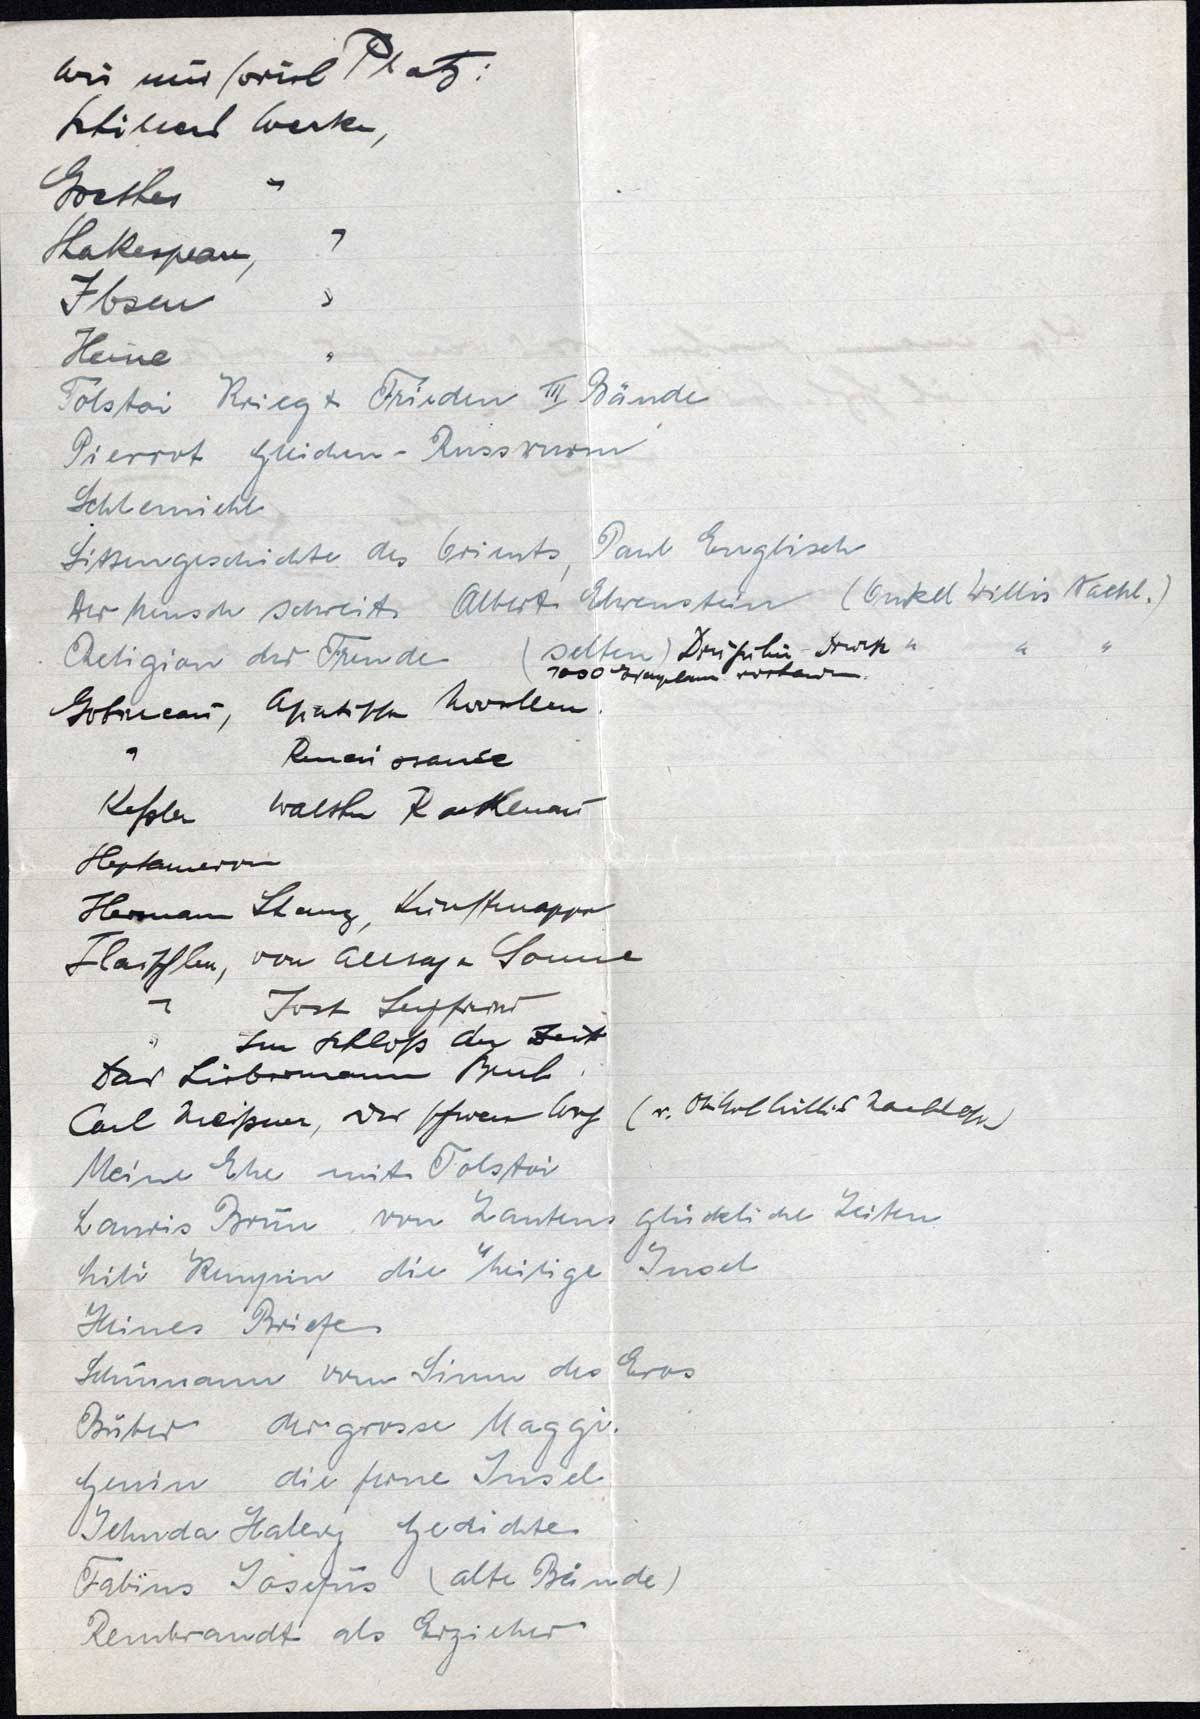 wir nur soviel Platz:
Schillers Werke,
Goethes "
Shakespeare, "
Ibsen "
Heine "
Tolstoi Krieg & Frieden III Bände
Pierrot Gleichen-Russwurm
Schlemiehl
Sittengeschichte des Orients, Paul Englisch
Der Mensch schreit Albert Ehrenstein (Onkel Willis Nachl.)
Religion der Freude (selten) Druck " " "
1000 Exemplare vorhanden.
Gobineau, Asiatische Novellen.
" Renaissance
Keßler Walther Rathenau
Heptameron
Hermann Stenz, Kunstmappe
Flaischlen, von Alltag u Sonne
" Jost Seyfried
" Im Schloß der Zeit
Das Liebermann Buch.
Carl Meißner, Der (v. Onkel Willis Nachlass)
Meine Ehe mit Tolstoi
Lauris Brün von Zantens glückliche Zeiten
Lili die heilige Insel
Heines Briefe
Schümann vom Sinn des Eros
Buber der grosse Maggi.
Genin die ferne Insel
Jehuda Halevy Gedichte
Fabius Josefus (alte Bände)
Rembrandt als Erzieher